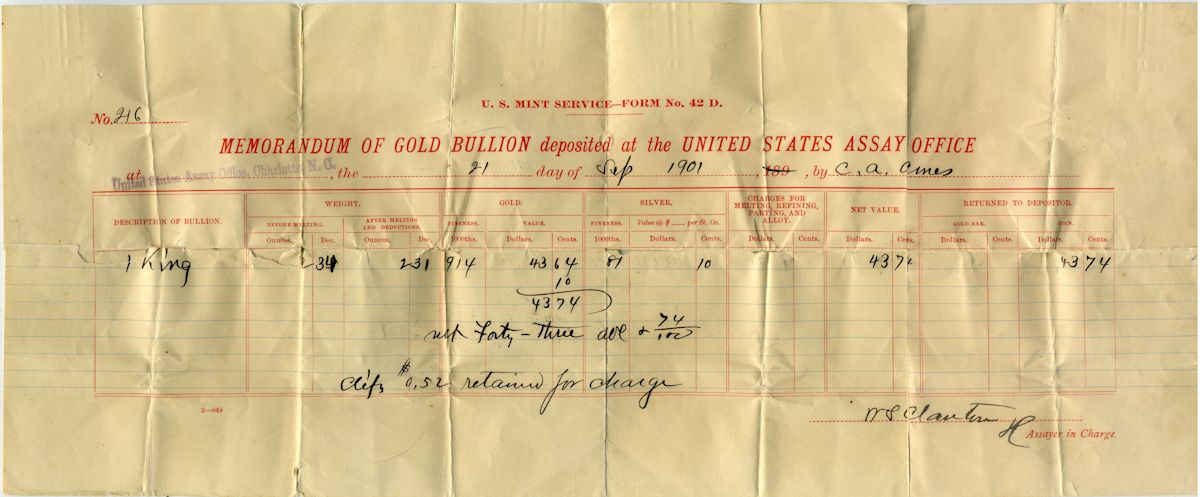 U. S. MINT SERVICE—FORM No. 42 D.
No. 216
MEMORANDUM OF GOLD BULLION deposited at the UNITED STATES ASSAY OFFICE
at United States Assay Office, Charlotte, N. C. , the 21 day of Sep 1901 , 189 , by C. A. Ames
DESCRIPTION OF BULLION. WEIGHT. GOLD. SILVER. CHARGES FOR MELTING, REFINING, PARTING, AND ALLOY. NET VALUE. RETURNED TO DEPOSITOR.
BEFORE MELTING. AFTER MELTING AND DEDUCTIONS. FINENESS. VALUE. FINENESS. Value @ $ per St. Oz. GOLD BAR. COIN.
Ounces. Dec. Ounces. Dec. 1000ths. Dollars. Cents. 1000ths. Dollars. Cents. Dollars. Cents. Dollars. Cents. Dollars. Cents. Dollars. Cents.
1 King 2 34 2 31 914 43 64 81 10 43 74 43 74
10
43 74
Forty-three & 74/100
$0.52 retained for charge
2—849
W S Clanton
Assayer in Charge